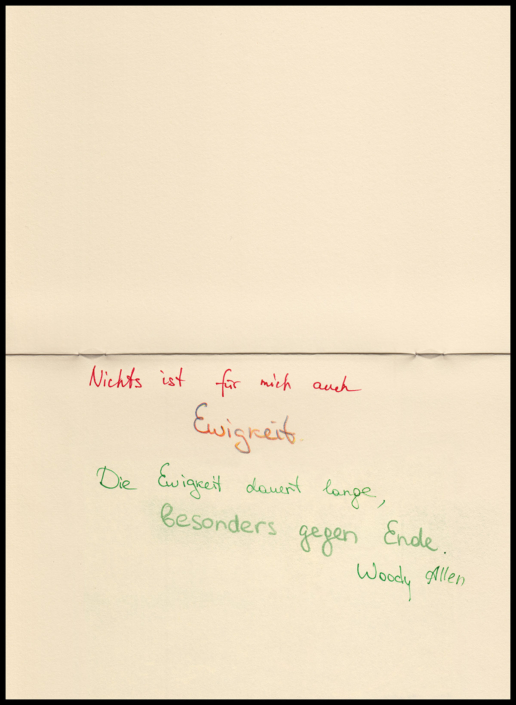 Nichts ist für mich auch
Ewigkeit.
Die Ewigkeit dauert lange,
Besonders gegen Ende.
Woody Allen